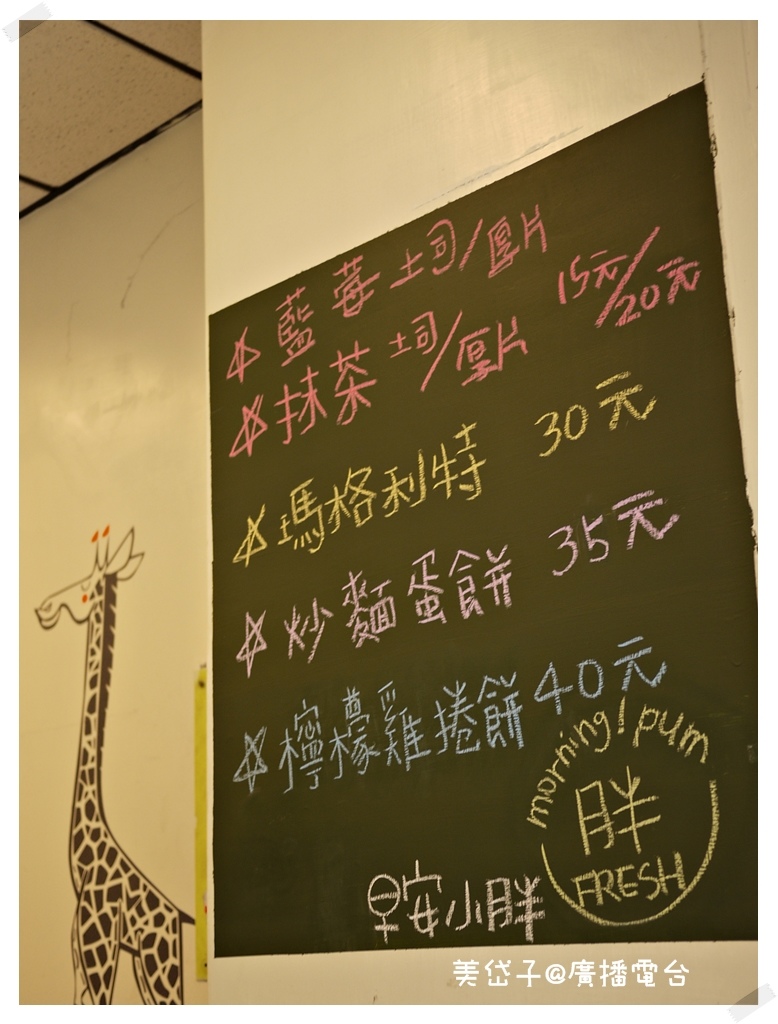 ☆藍莓土司/厚片
15元/20元
☆抹茶土司/厚片
☆瑪格利特 30元
☆炒麵蛋餅 35元
☆檸檬雞捲餅 40元
morning! pum
胖
FRESH
早安小胖
美岱子@廣播電台